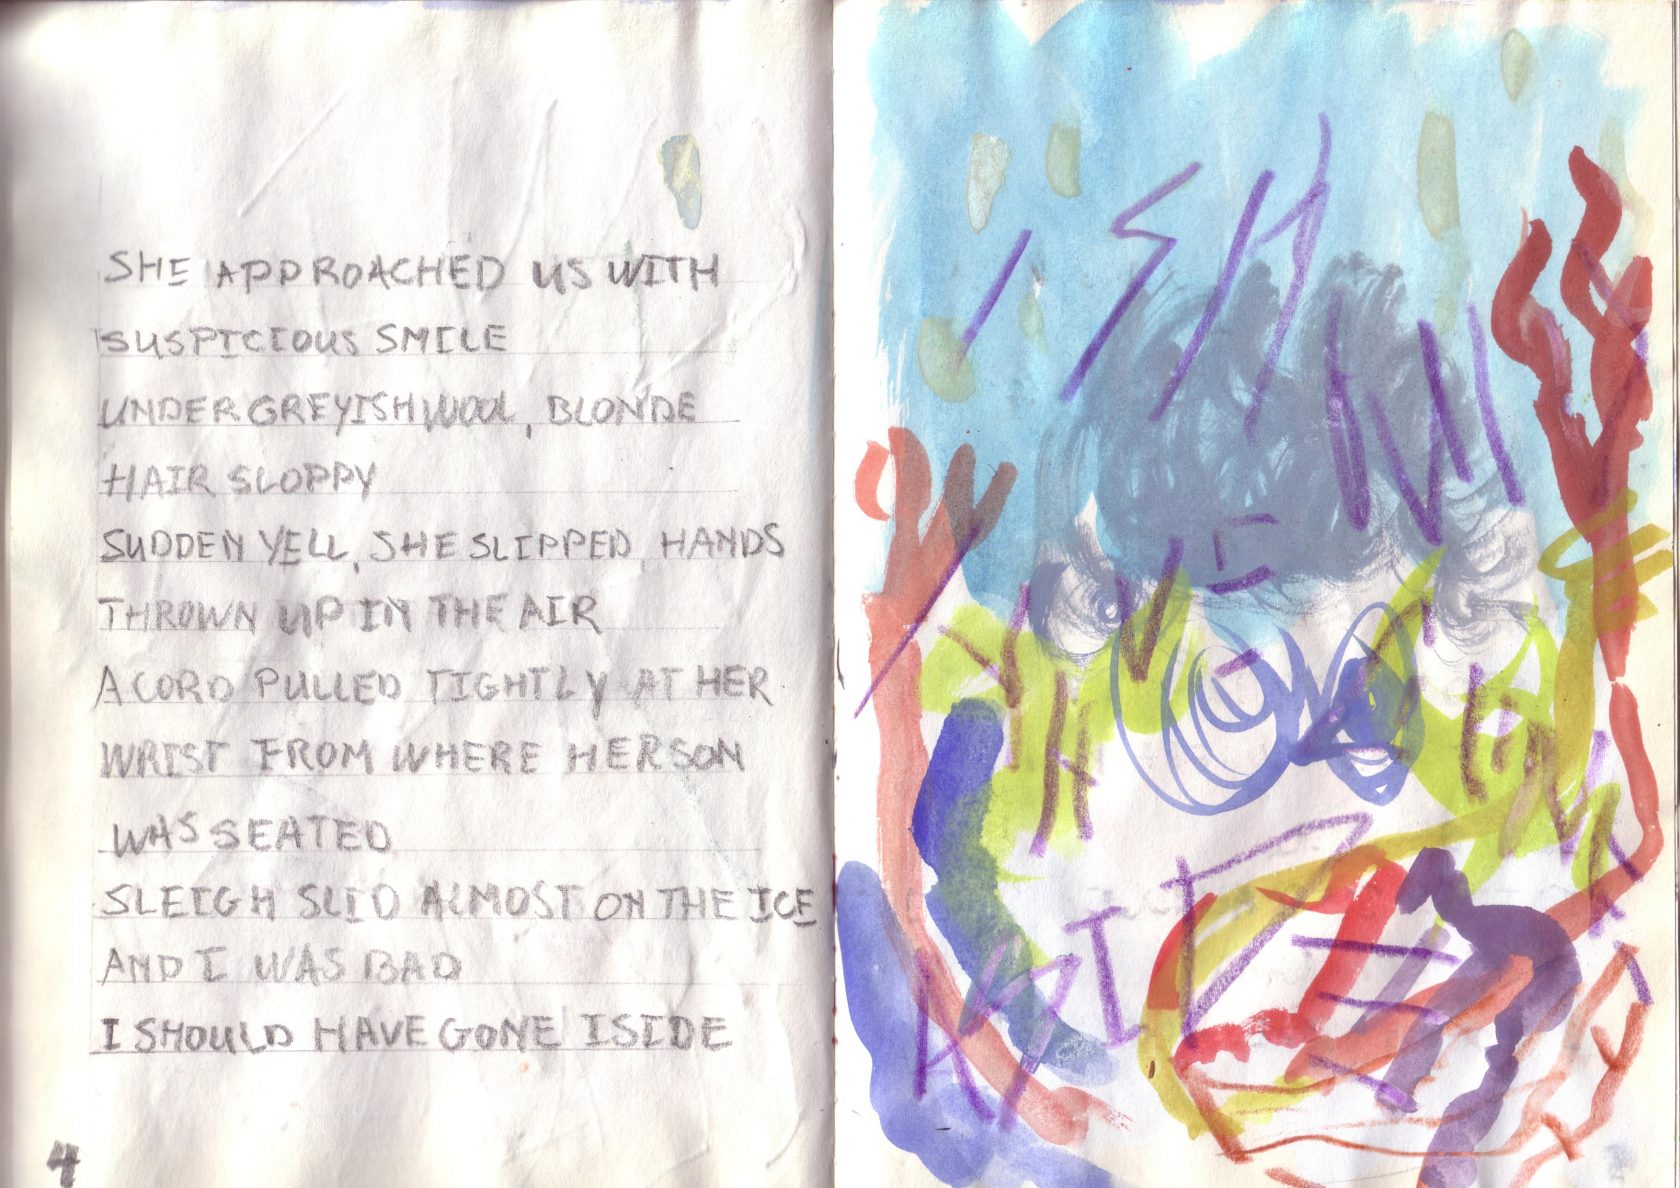 SHE APPROACHED US WITH
SUSPICIOUS SMILE
UNDER GREYISH WOOL, BLONDE
HAIR SLOPPY
SUDDEN YELL, SHE SLIPPED, HANDS
THROWN UP IN THE AIR
A CORD PULLED TIGHTLY AT HER
WRIST FROM WHERE HER SON
WAS SEATED
SLEIGH SLID ALMOST ON THE ICE
AND I WAS BAD
I SHOULD HAVE GONE ISIDE
4